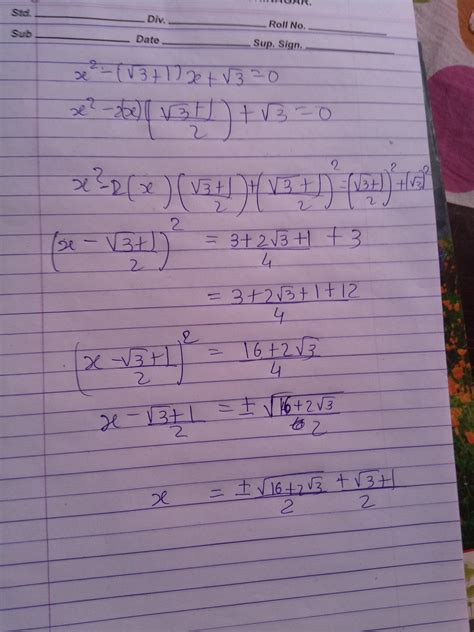 NAGAR.
Std. Div. Roll No.
Sub Date Sup. Sign.
x² - (√3+1)x + √3 = 0
x² - 2(x)((√3+1)/2) + √3 = 0
x² - 2(x)((√3+1)/2) + ((√3+1)/2)² = ((√3+1)/2)² + (√3)²
(x - (√3+1)/2)² = (3+2√3+1)/4 + 3
= (3+2√3+1+12)/4
(x - (√3+1)/2)² = (16+2√3)/4
x - (√3+1)/2 = ± √(16+2√3)/2
x = ± √(16+2√3)/2 + (√3+1)/2